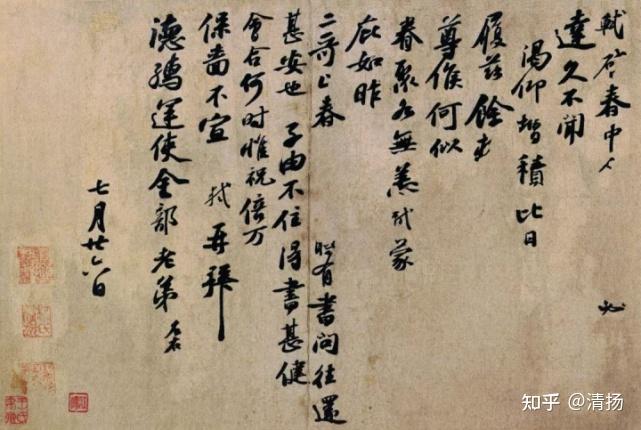 軾啓春中人必
達久不聞
渴仰增積比日
履兹餘
尊候何似
眷聚各無恙軾蒙
庇如昨
二哥上春有書問往還
甚安也子由不住得書甚健
會合何時惟祝倍万
保嗇不宣軾再拜
德孺運使金部老弟
七月廿六日
知乎 @清扬